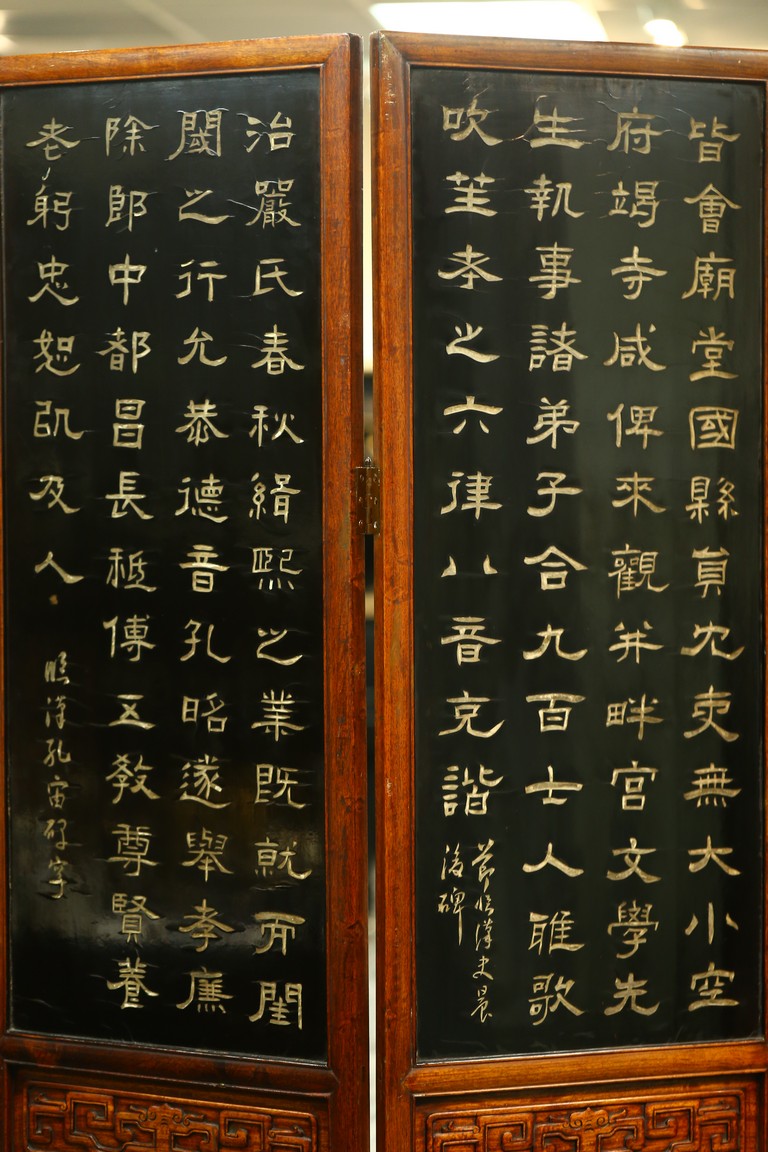 皆會廟堂國縣員冗吏無大小空
府竭寺咸俾來觀并畔宮文學先
生執事諸弟子合九百士人雅歌
吹笙孝之六律八音克諧
節臨漢史晨
後碑
治嚴氏春秋緝熙之業既就而閨
閾之行允恭德音孔昭遂舉孝廉
除郎中都昌長祗傅五教尊賢養
老躬忠恕以及人
臨漢孔宙碑字